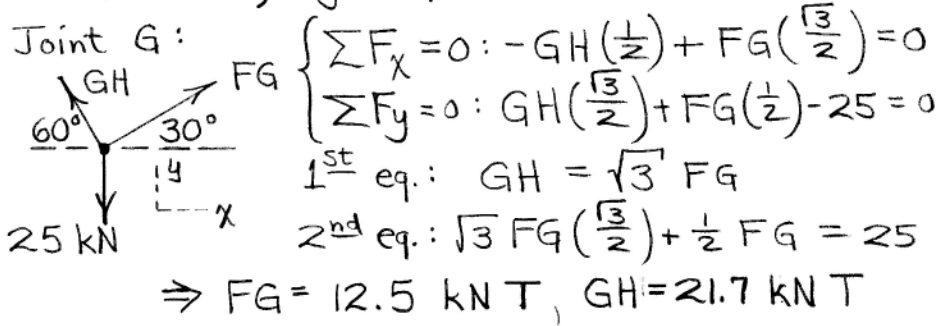 Joint G:
GH
FG
60°
30°
y
x
25 kN
ΣFx = 0 : -GH(1/2) + FG(√3/2) = 0
ΣFy = 0 : GH(√3/2) + FG(1/2) - 25 = 0
1st eq. : GH = √3 FG
2nd eq. : √3 FG(√3/2) + 1/2 FG = 25
⇒ FG = 12.5 kN T, GH = 21.7 kN T